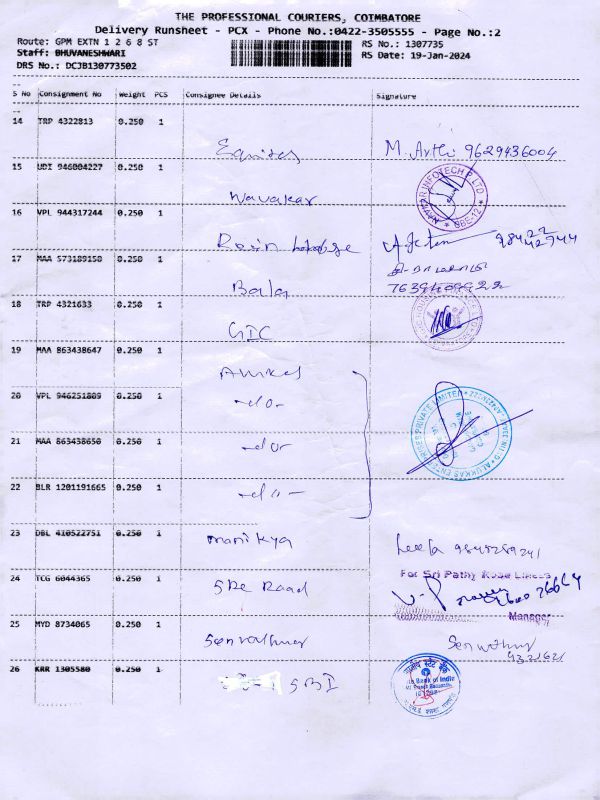 THE PROFESSIONAL COURIERS, COIMBATORE
Delivery Runsheet - PCX - Phone No.:0422-3505555 - Page No.:2
Route: GPM EXTN 1 2 6 8 ST
RS No.: 1307735
Staff: BHUVANESHWARI
RS Date: 19-Jan-2024
DRS No.: DCJB130773502
S No Consignment No Weight PCS Consignee Details Signature
14 TRP 4322813 0.250 1
Equitas M. Arthi 9629436004
15 UDI 946004227 0.250 1
Navakar
16 VPL 944317244 0.250 1
98422
42944
17 MAA 573189150 0.250 1
Bala
18 TRP 4321633 0.250 1
GIC
19 MAA 863438647 0.250 1
20 VPL 946251809 0.250 1
-do-
21 MAA 863438650 0.250 1
-do-
ALUKKAS ENTERPRISES PRIVATE LIMITED
22 BLR 1201191665 0.250 1
-do-
23 DBL 410522751 0.250 1
manikya
24 TCG 6044365 0.250 1
For Sri Pathy
Manager
25 MYD 8734065 0.250 1
26 KRR 1305580 0.250 1
SBI
Bank of India